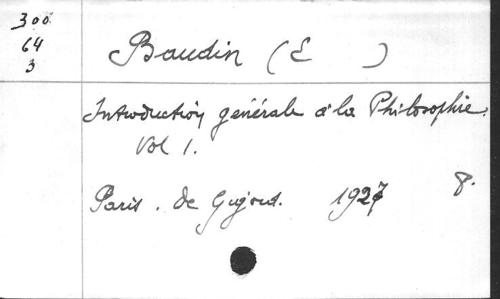 300
64
3
Baudin (E )
Introduction générale à la Philosophie.
Vol 1.
Paris. de Gigord. 1927 8.